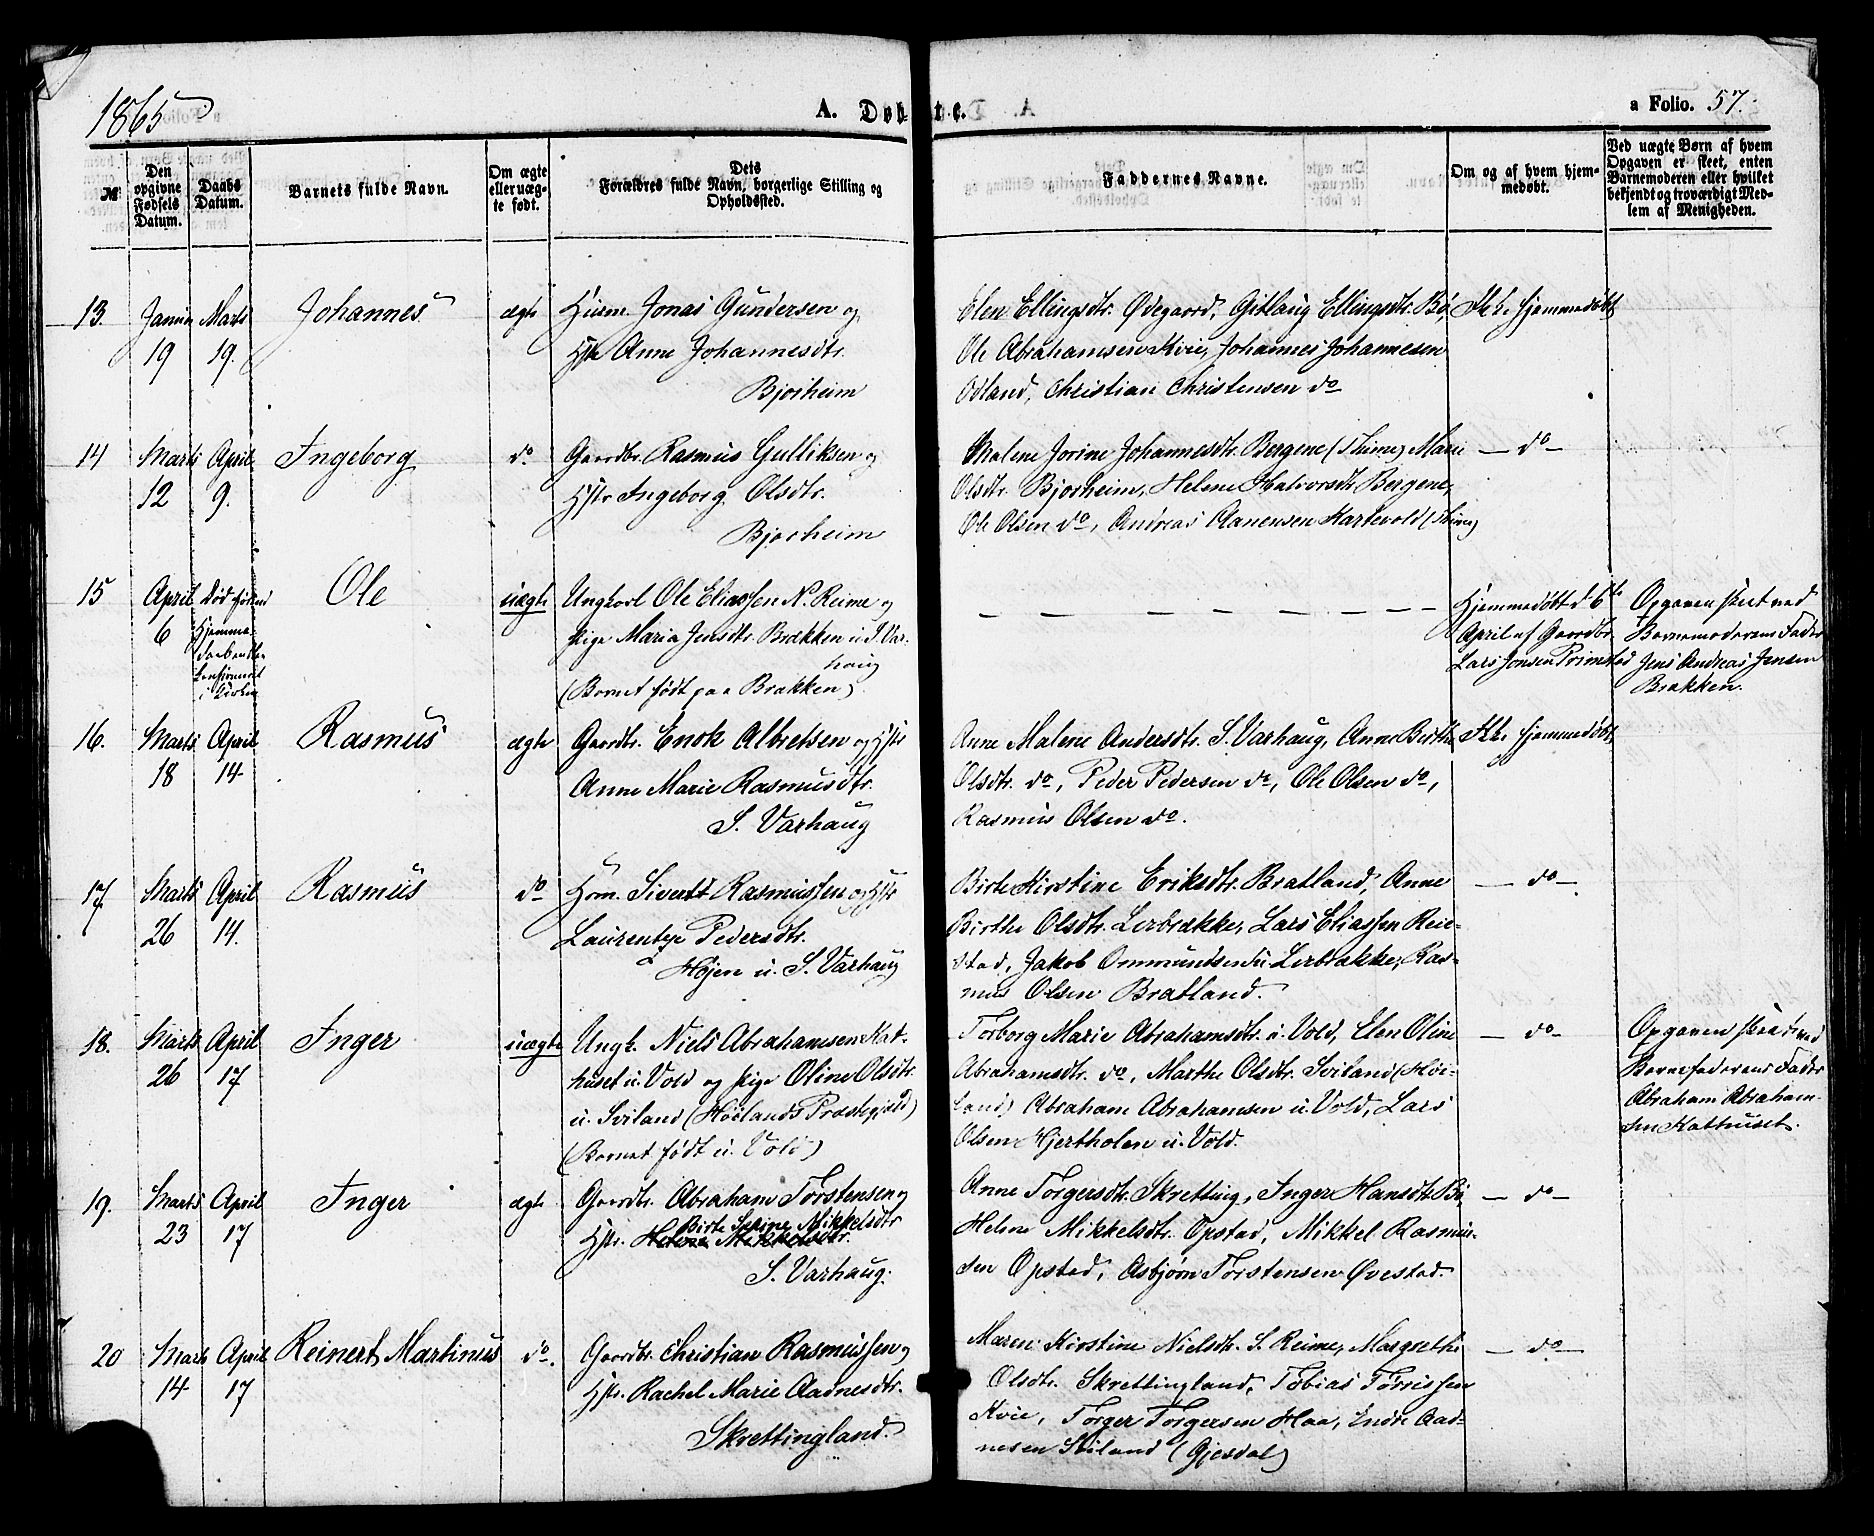 1865
A. Døbte.
a Folio. 57.
№
Den opgivne Fødsels Datum.
Daabs Datum.
Barnets fulde Navn.
Om ægte eller uægte født.
Dets Forældres fulde Navn, borgerlige Stilling og Opholdssted.
Faddernes Navne.
Om og af hvem hjemmedøbt.
Ved uægte Børn af hvem Opgaven er skeet, enten Barnemoderen eller hvilket bekjendt og troværdigt Medlem af Menigheden.
13. Januar 19 Marts 19. Johannes ægte
Huusm. Jonas Gundersen og
Hstr Anne Johannesdtr.
Bjorheim
Elen Ellingsdtr. Ødegaard, Gitlaug Ellingsdtr. Bø,
Ole Abrahamsen Kvie, Johannes Johannesen
Odland, Christian Christensen do
Ikke hjemmedøbt
14 Marts 12 April 9. Ingeborg do
Gaardbr. Rasmus Gulliksen og
Hstr Ingeborg Olsdtr.
Bjorheim
Malene Jorine Johannesdtr. Bergene (Thime) Marie
Olsdtr. Bjorheim, Helene Halvorsdtr. Bergene,
Ole Olsen do, Andreas Aanensen Kartevold (Thime)
— do —
15 April 6 Død førend Hjemmedaaben blev confirmeret i Kirken
Ole uægte
Ungkarl Ole Eliassen N. Reime og
Pige Maria Jensdtr. Brækken u. S. Var-
haug
(Barnet født paa Brækken)
— — — — — — — — —
Hjemmedøbt d. 6te
April af Gaardbr.
Lars Jonsen Primstad
Opgaven skeet ved
Barnemoderens Fader
Jens Andreas Jensen
Brækken.
16. Marts 18 April 14 Rasmus ægte
Gaardbr. Enok Albretsen og Hstr
Anne Marie Rasmusdtr.
S. Varhaug
Anne Malene Andersdtr. S. Varhaug, Anne Birthe
Olsdtr. do, Peder Pedersen do, Ole Olsen do,
Rasmus Olsen do.
Ikke hjemmedøbt
17. Marts 26 April 14. Rasmus do
Hsm. Sivert Rasmussen og Hstr
Laurentze Pedersdtr.
Højen u. S. Varhaug
Birte Kirstine Eriksdtr. Bratland, Anne
Birthe Olsdtr. Lerbrække, Lars Eliassen Reie-
stad, Jakob Ommundsen u. Lerbrække, Ras-
mus Olsen Bratland.
— do —
18. Marts 26 April 17 Inger uægte
Ungk. Niels Abrahamsen Kat-
huset u. Vold og Pige Oline Olsdtr.
u. Sviland (Høilands Præstegjeld)
(Barnet født u. Vold)
Torborg Marie Abrahamsdtr. u. Vold, Elen Oline
Abrahamsdtr. do, Marthe Olsdtr. Sviland (Høi-
land) Abraham Abrahamsen u. Vold, Lars
Olsen Hjertholen u. Vold.
— do —
Opgaven skeet ved
Barnefaderens Fader
Abraham Abraham-
sen Kathuset.
19. Marts 23 April 17 Inger ægte
Gaardbr. Abraham Torstensen og
Birte Serine Mikkelsdtr
Hstr. Helene Mikkelsdtr.
S. Varhaug.
Anne Torgersdtr. Skretting, Inger Hansdtr. Bø,
Helene Mikkelsdtr. Opstad, Mikkel Rasmus-
sen Opstad, Asbjørn Torstensen Øvestad.
— do —
20 Marts 14 April 17 Reinert Martinus do.
Gaardbr. Christian Rasmussen og
Hstr. Rachel Marie Aadnesdtr.
Skrettingland.
Maren Kirstine Nielsdtr. S. Reime, Margrethe
Olsdtr. Skrettingland, Tobias Tørrissen
Kvie, Torger Torgersen Haa, Endre Aad-
nesen Sviland (Gjesdal)
— do —